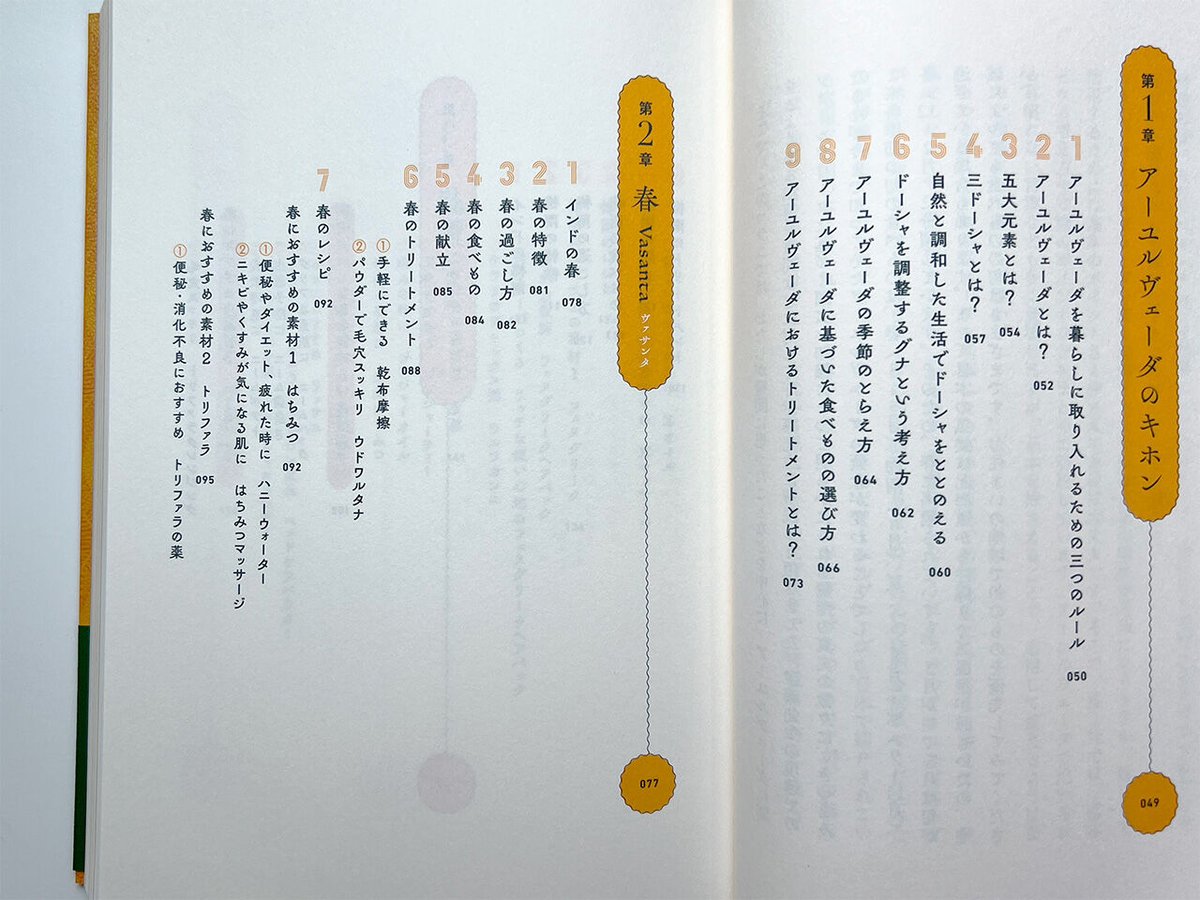 第1章 アーユルヴェーダのキホン 049
1 アーユルヴェーダを暮らしに取り入れるための三つのルール 050
2 アーユルヴェーダとは? 052
3 五大元素とは? 054
4 三ドーシャとは? 057
5 自然と調和した生活でドーシャをととのえる 060
6 ドーシャを調整するグナという考え方 062
7 アーユルヴェーダの季節のとらえ方 064
8 アーユルヴェーダに基づいた食べものの選び方 066
9 アーユルヴェーダにおけるトリートメントとは? 073
第2章 春 Vasanta ヴァサンタ 077
1 インドの春 078
2 春の特徴 081
3 春の過ごし方 082
4 春の食べもの 084
5 春の献立 085
6 春のトリートメント 088
① 手軽にできる 乾布摩擦
② パウダーで毛穴スッキリ ウドワルタナ
7 春のレシピ 092
春におすすめの素材1 はちみつ 092
① 便秘やダイエット、疲れた時に ハニーウォーター
② ニキビやくすみが気になる肌に はちみつマッサージ
春におすすめの素材2 トリファラ 095
① 便秘・消化不良におすすめ トリファラの薬